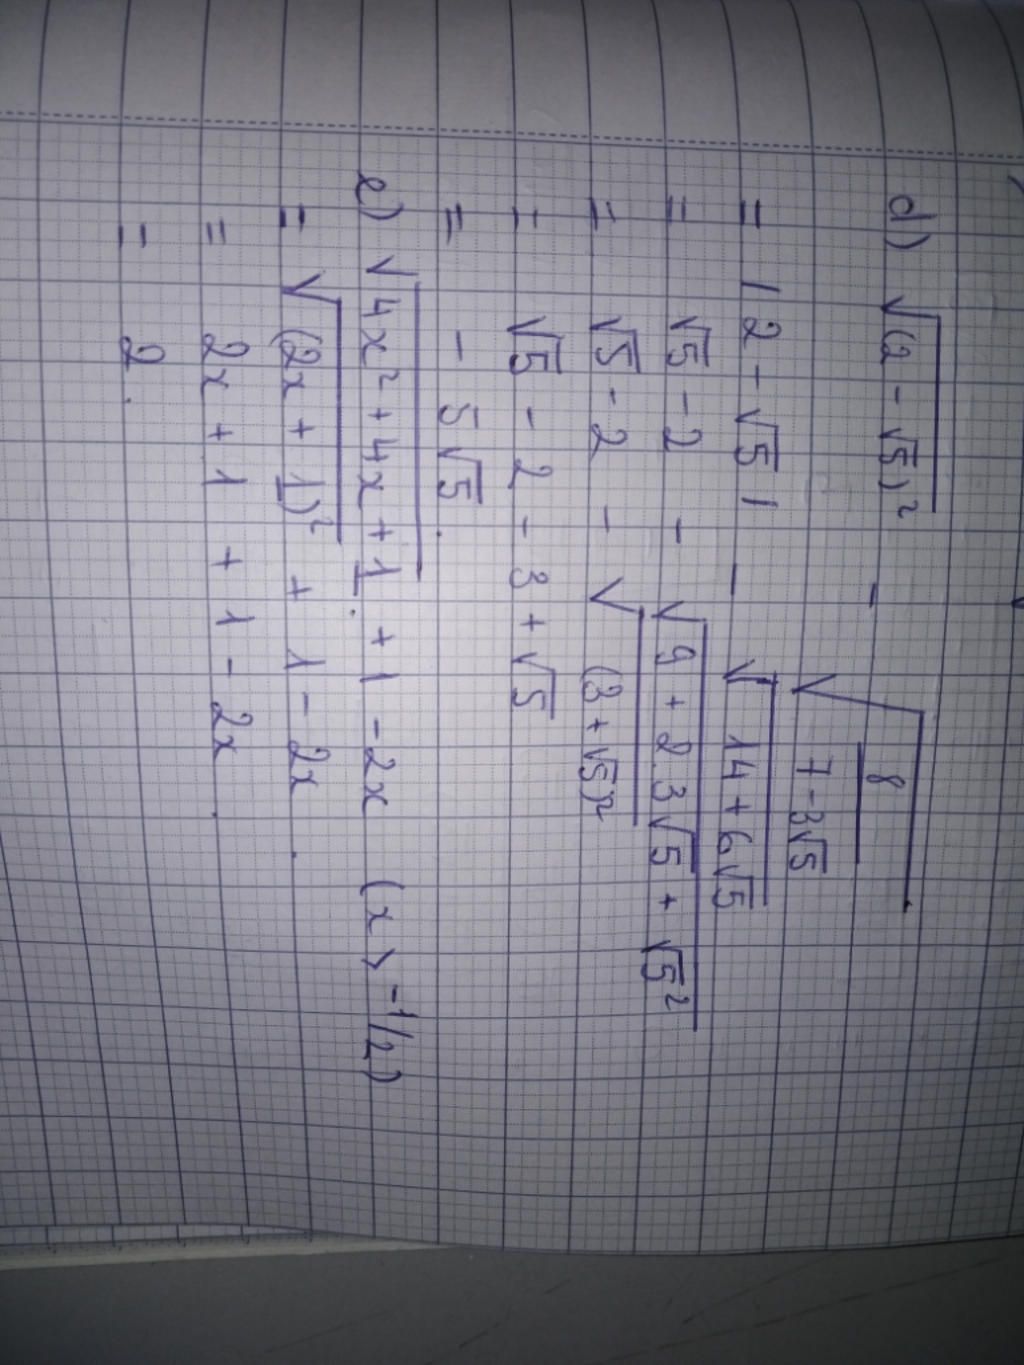 d) √(2 - √5)² - √(8 / (7 - 3√5))
= |2 - √5| - √(14 + 6√5)
= √5 - 2 - √(9 + 2.3√5 + √5²)
= √5 - 2 - √(3 + √5)²
= √5 - 2 - 3 + √5
= - 5√5.
e) √(4x² + 4x + 1) + 1 - 2x (x > -1/2)
= √(2x + 1)² + 1 - 2x.
= 2x + 1 + 1 - 2x.
= 2.